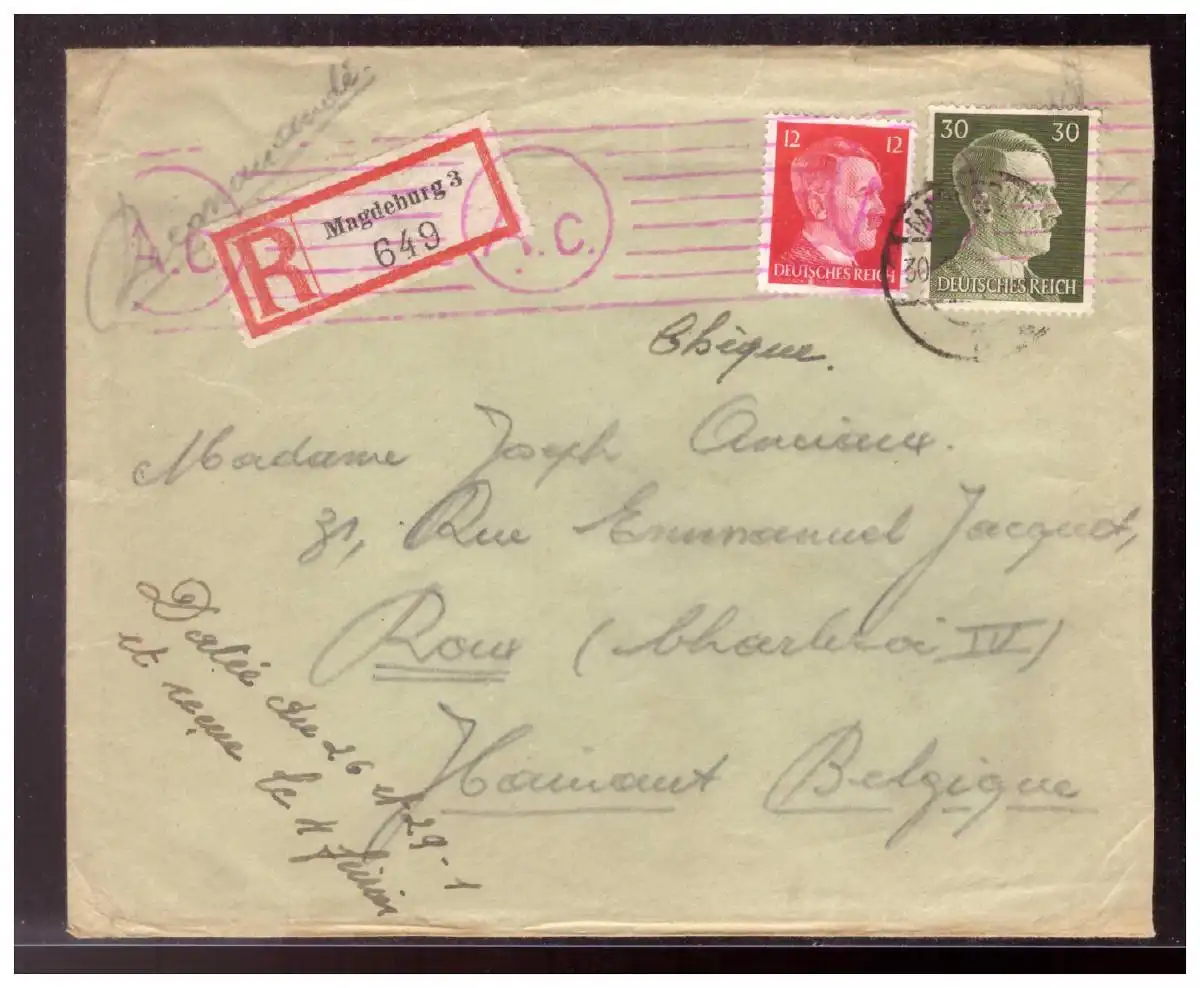 Recommandé
A.C.
R
Magdeburg 3
649
A.C.
12 12
DEUTSCHES REICH
30 30
DEUTSCHES REICH
30
Chèque.
Madame Joseph Anciaux.
31, Rue Emmanuel Jacquet,
Roux (Charleroi IV)
Hainaut Belgique
Datée du 26 et 29-1
et reçue le 4 février